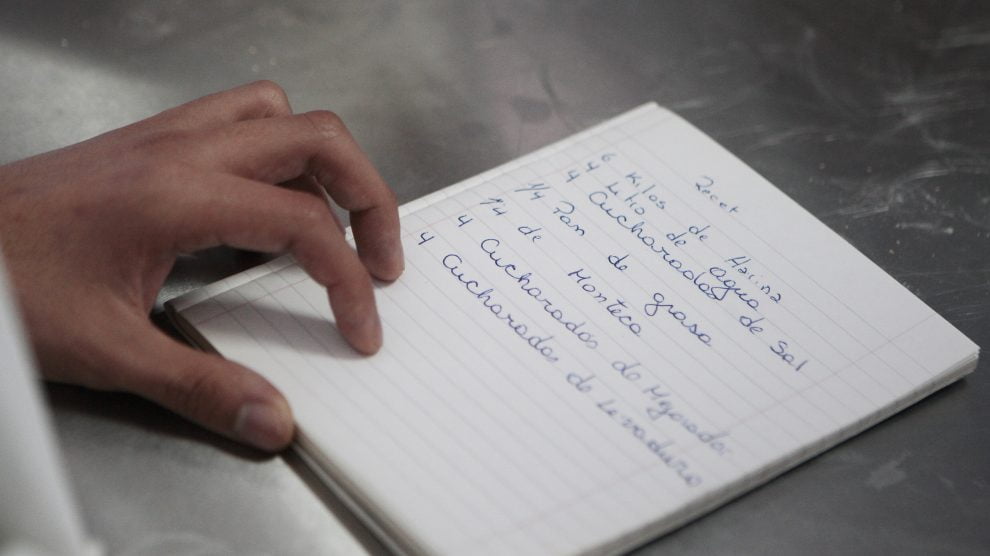 Recet
6 Kilos de Harina
4 Litio de agua
4 Cucharadas de Sal
1/4 Pan de grasa
1/4 de Manteca
4 Cucharadas de Mejorador
4 Cucharadas de Levadura